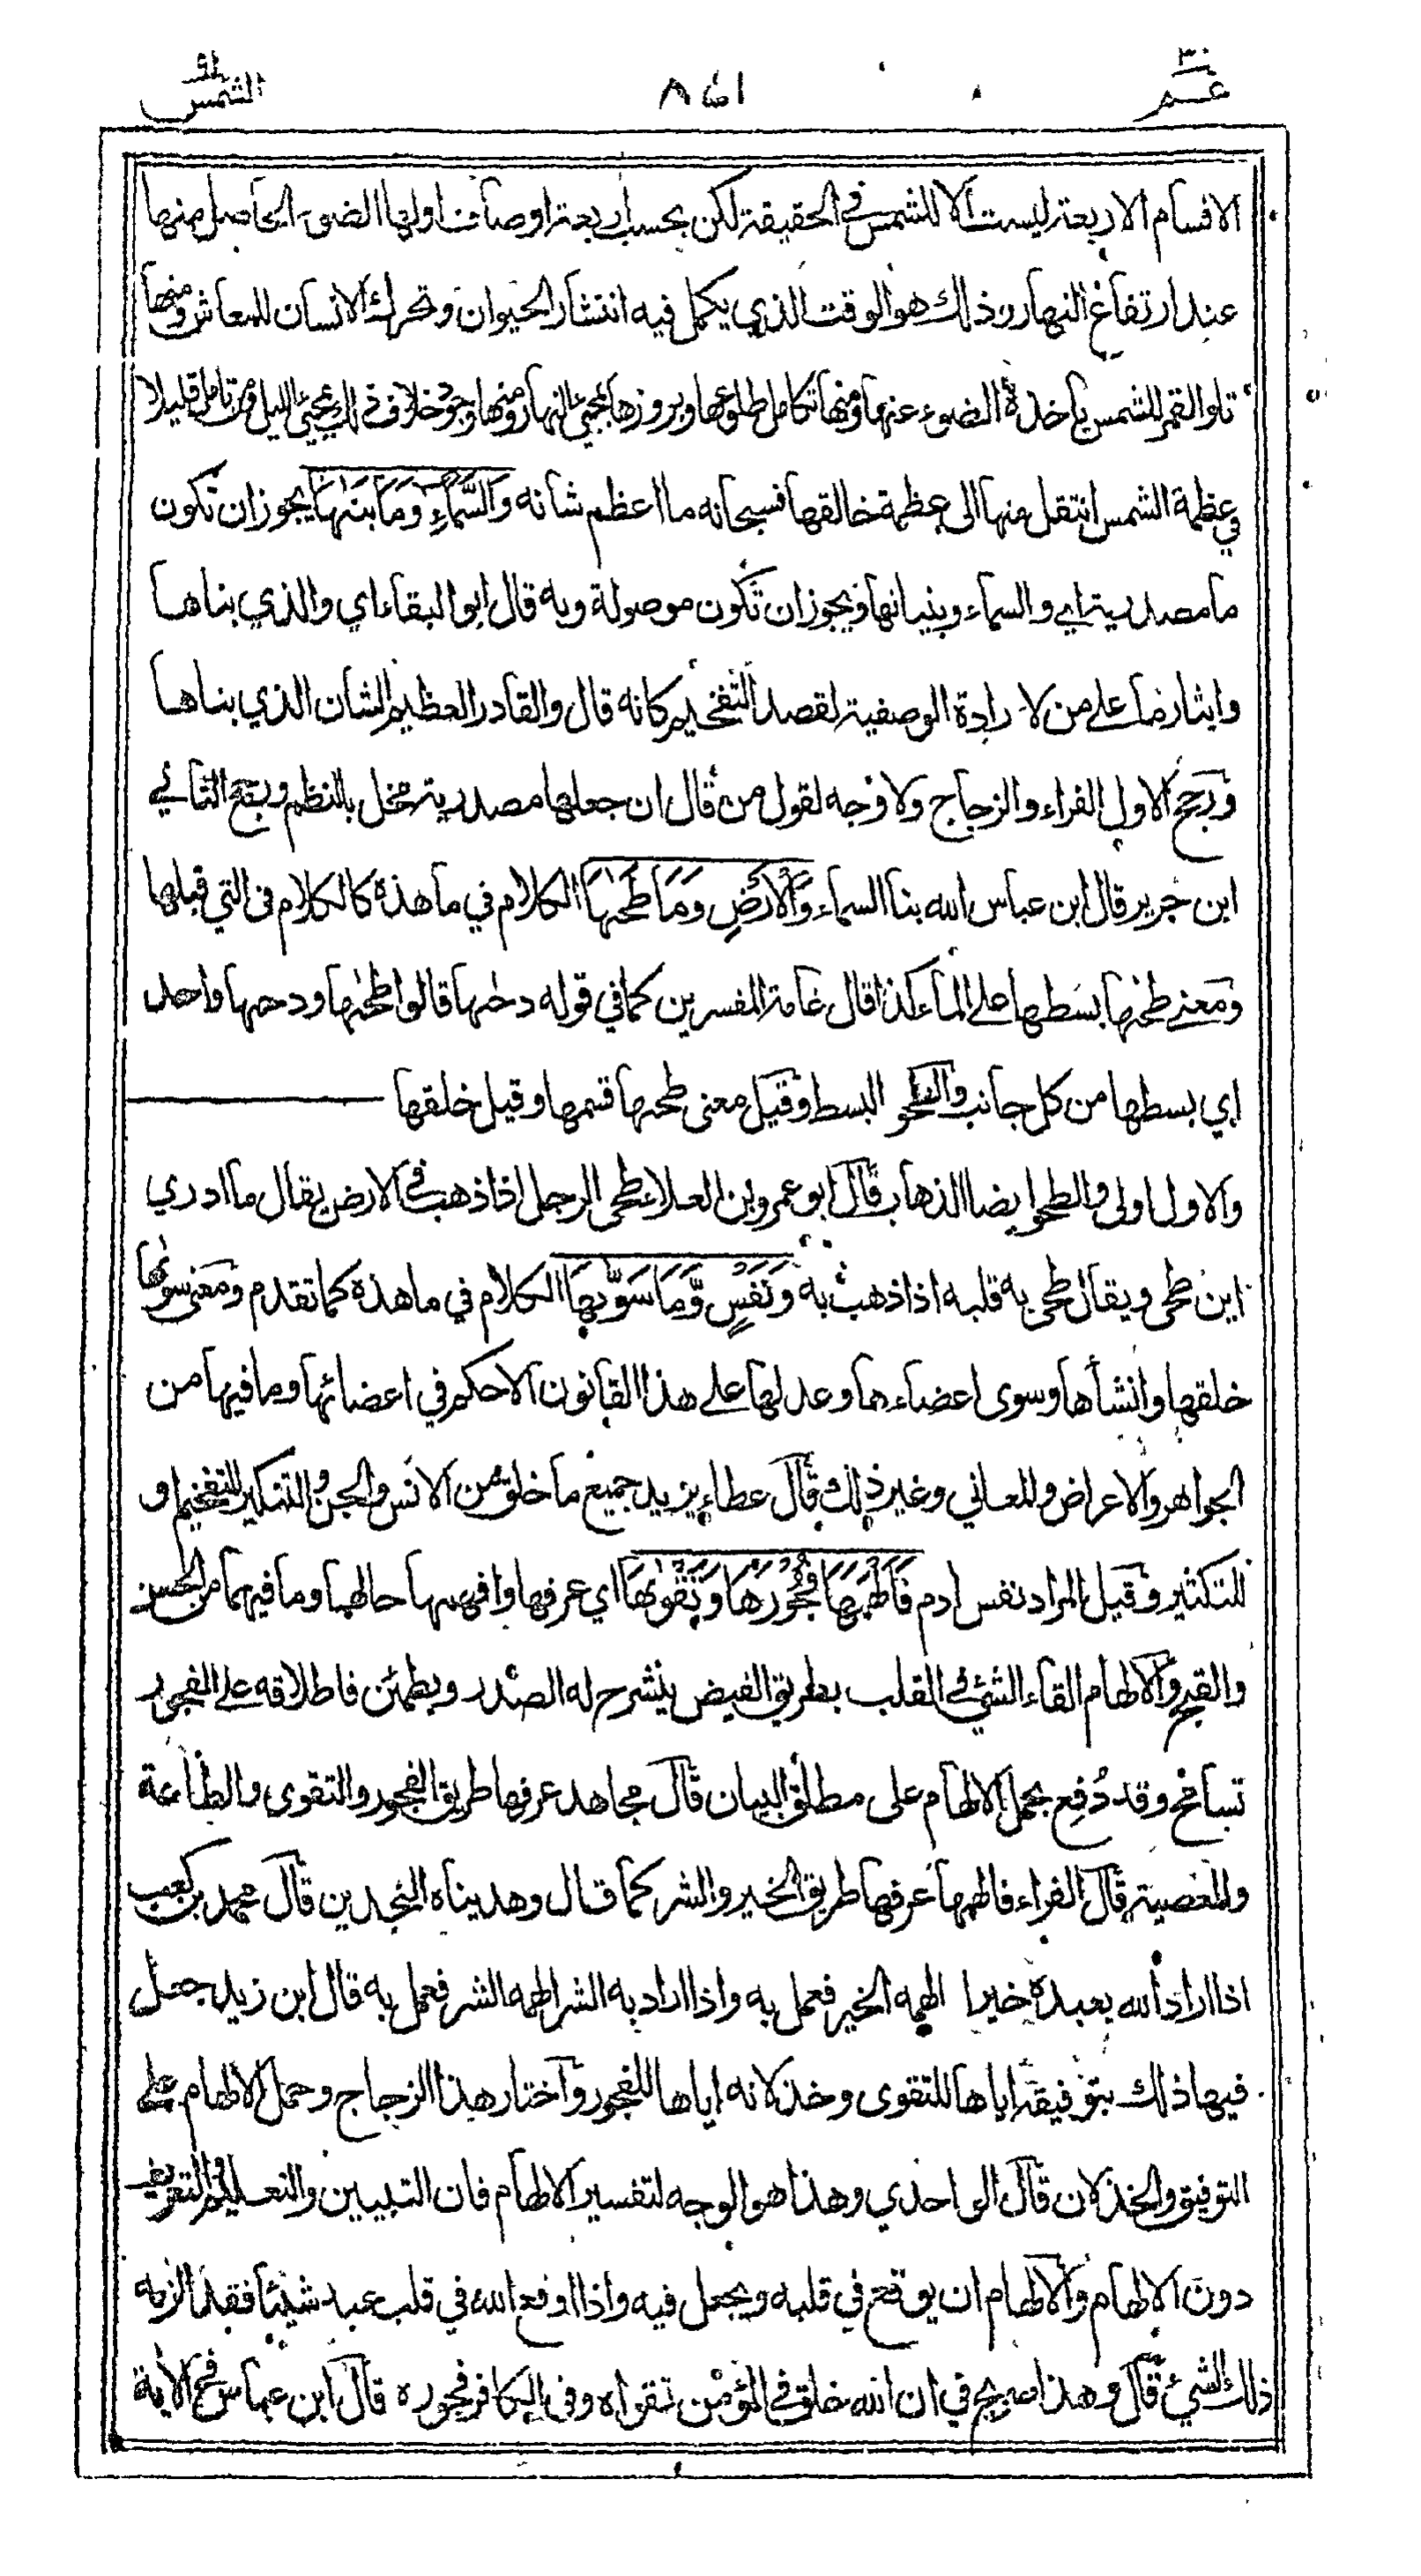 ٣٠
عـم
١٤٨
٩١
الشمس
الاقسام الاربعة ليست الا للشمس في الحقيقة لكن بحسب اربعة اوصاف اولها الضوء الحاصل منها
عند ارتفاع النهار وذلك هو الوقت الذي يكمل فيه انتشار الحيوان وتحرك الانسان للمعاش ومنها
تلو القمر للشمس باخذه الضوء عنها ومنها تكامل طلوعها وبروزها بمجيئ النهار ومنها وجود خلاف ذلك بمجيئ الليل ومن تامل قليلا
في عظمة الشمس انتقل منها الى عظمة خالقها فسبحانه ما اعظم شانه وَالسَّمَاءِ وَمَا بَنٰهَا يجوز ان تكون
ما مصدرية اي والسماء وبنيانها ويجوز ان تكون موصولة وبه قال ابو البقاء اي والذي بناها
وايثار ما على من لارادة الوصفية لقصد التفخيم كانه قال والقادر العظيم الشان الذي بناها
ورجح الاول الفراء والزجاج ولا وجه لقول من قال ان جعلها مصدرية مخل بالنظم ورجح الثاني
ابن جرير قال ابن عباس الله بنا السماء وَالْاَرْضِ وَمَا طَحٰهَا الكلام في ما هذه كالكلام في التي قبلها
ومعنى طحٰها بسطها على الماء كذا قال عامة المفسرين كما في قوله دحٰها قالوا طحٰها ودحٰها واحد
اي بسطها من كل جانب والطحو البسط وقيل معنى طحٰها قسمها وقيل خلقها
والاول اولى والطحو ايضا الذهاب قال ابو عمرو بن العلاء طحى الرجل اذا ذهب في الارض يقال ما ادري
اين طحى ويقال طحى به قلبه اذا ذهب به وَنَفْسٍ وَّمَا سَوّٰىهَا الكلام في ما هذه كما تقدم ومعنى سوٰىها
خلقها وانشأها وسوى اعضاءها وعدلها على هذا القانون الاحكم في اعضائها وما فيها من
الجواهر والاعراض والمعاني وغير ذلك قال عطاء يزيد جميع ما خلق من الانس والجن والتنكير للتفخيم او
للتكثير وقيل المراد نفس ادم فَاَلْهَمَهَا فُجُوْرَهَا وَتَقْوٰىهَا اي عرفها وافهمها حالهما وما فيهما من الحسن
والقبح والالهام القاء الشئ في القلب بطريق الفيض ينشرح له الصدر ويطمئن فاطلاقه على الفجور
تسامح وقد دُفع بحمل الالهام على مطلق البيان قال مجاهد عرفها طريق الفجور والتقوى والطاعة
والمعصية قال الفراء فالهمها عرفها طريق الخير والشر كما قال وهديناه النجدين قال محمد بن كعب
اذا اراد الله بعبده خيرا الهمه الخير فعمل به واذا اراد به الشر الهمه الشر فعمل به قال ابن زيد جعل
فيها ذلك بتوفيقه اياها للتقوى وخذلانه اياها للفجور واختار هذا الزجاج وحمل الالهام على
التوفيق والخذلان قال الواحدي وهذا هو الوجه لتفسير الالهام فان التبيين والتعليم والتعريف
دون الالهام والالهام ان يوقع في قلبه ويجعل فيه واذا اوقع الله في قلب عبد شيئا فقد الزمه
ذلك الشئ قال وهذا صريح في ان الله خلق في المؤمن تقواه وفي الكافر فجوره قال ابن عباس في الاية